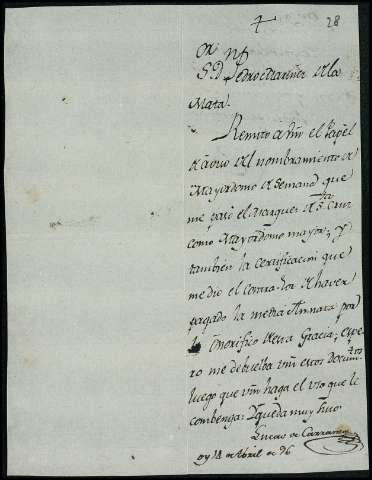 28
Sr. Dn.
Pedro Mariner de la
Mata.
Remito a Vm el Papel
de aviso del nombramiento de
Mayordomo de Semana que
me pasó el Marques de Sta. Cruz
como Mayordomo mayor; y
también la certificacion que
me dio el Contador de haver
pagado la media Annata por
lo Onorifico de esta Gracia; espe
ro me debuelba Vm estos Documtos.
luego que Vm haga el uso que le
combenga: Queda muy suio
Lucas de Carranza
oy 14 de Abril de 96